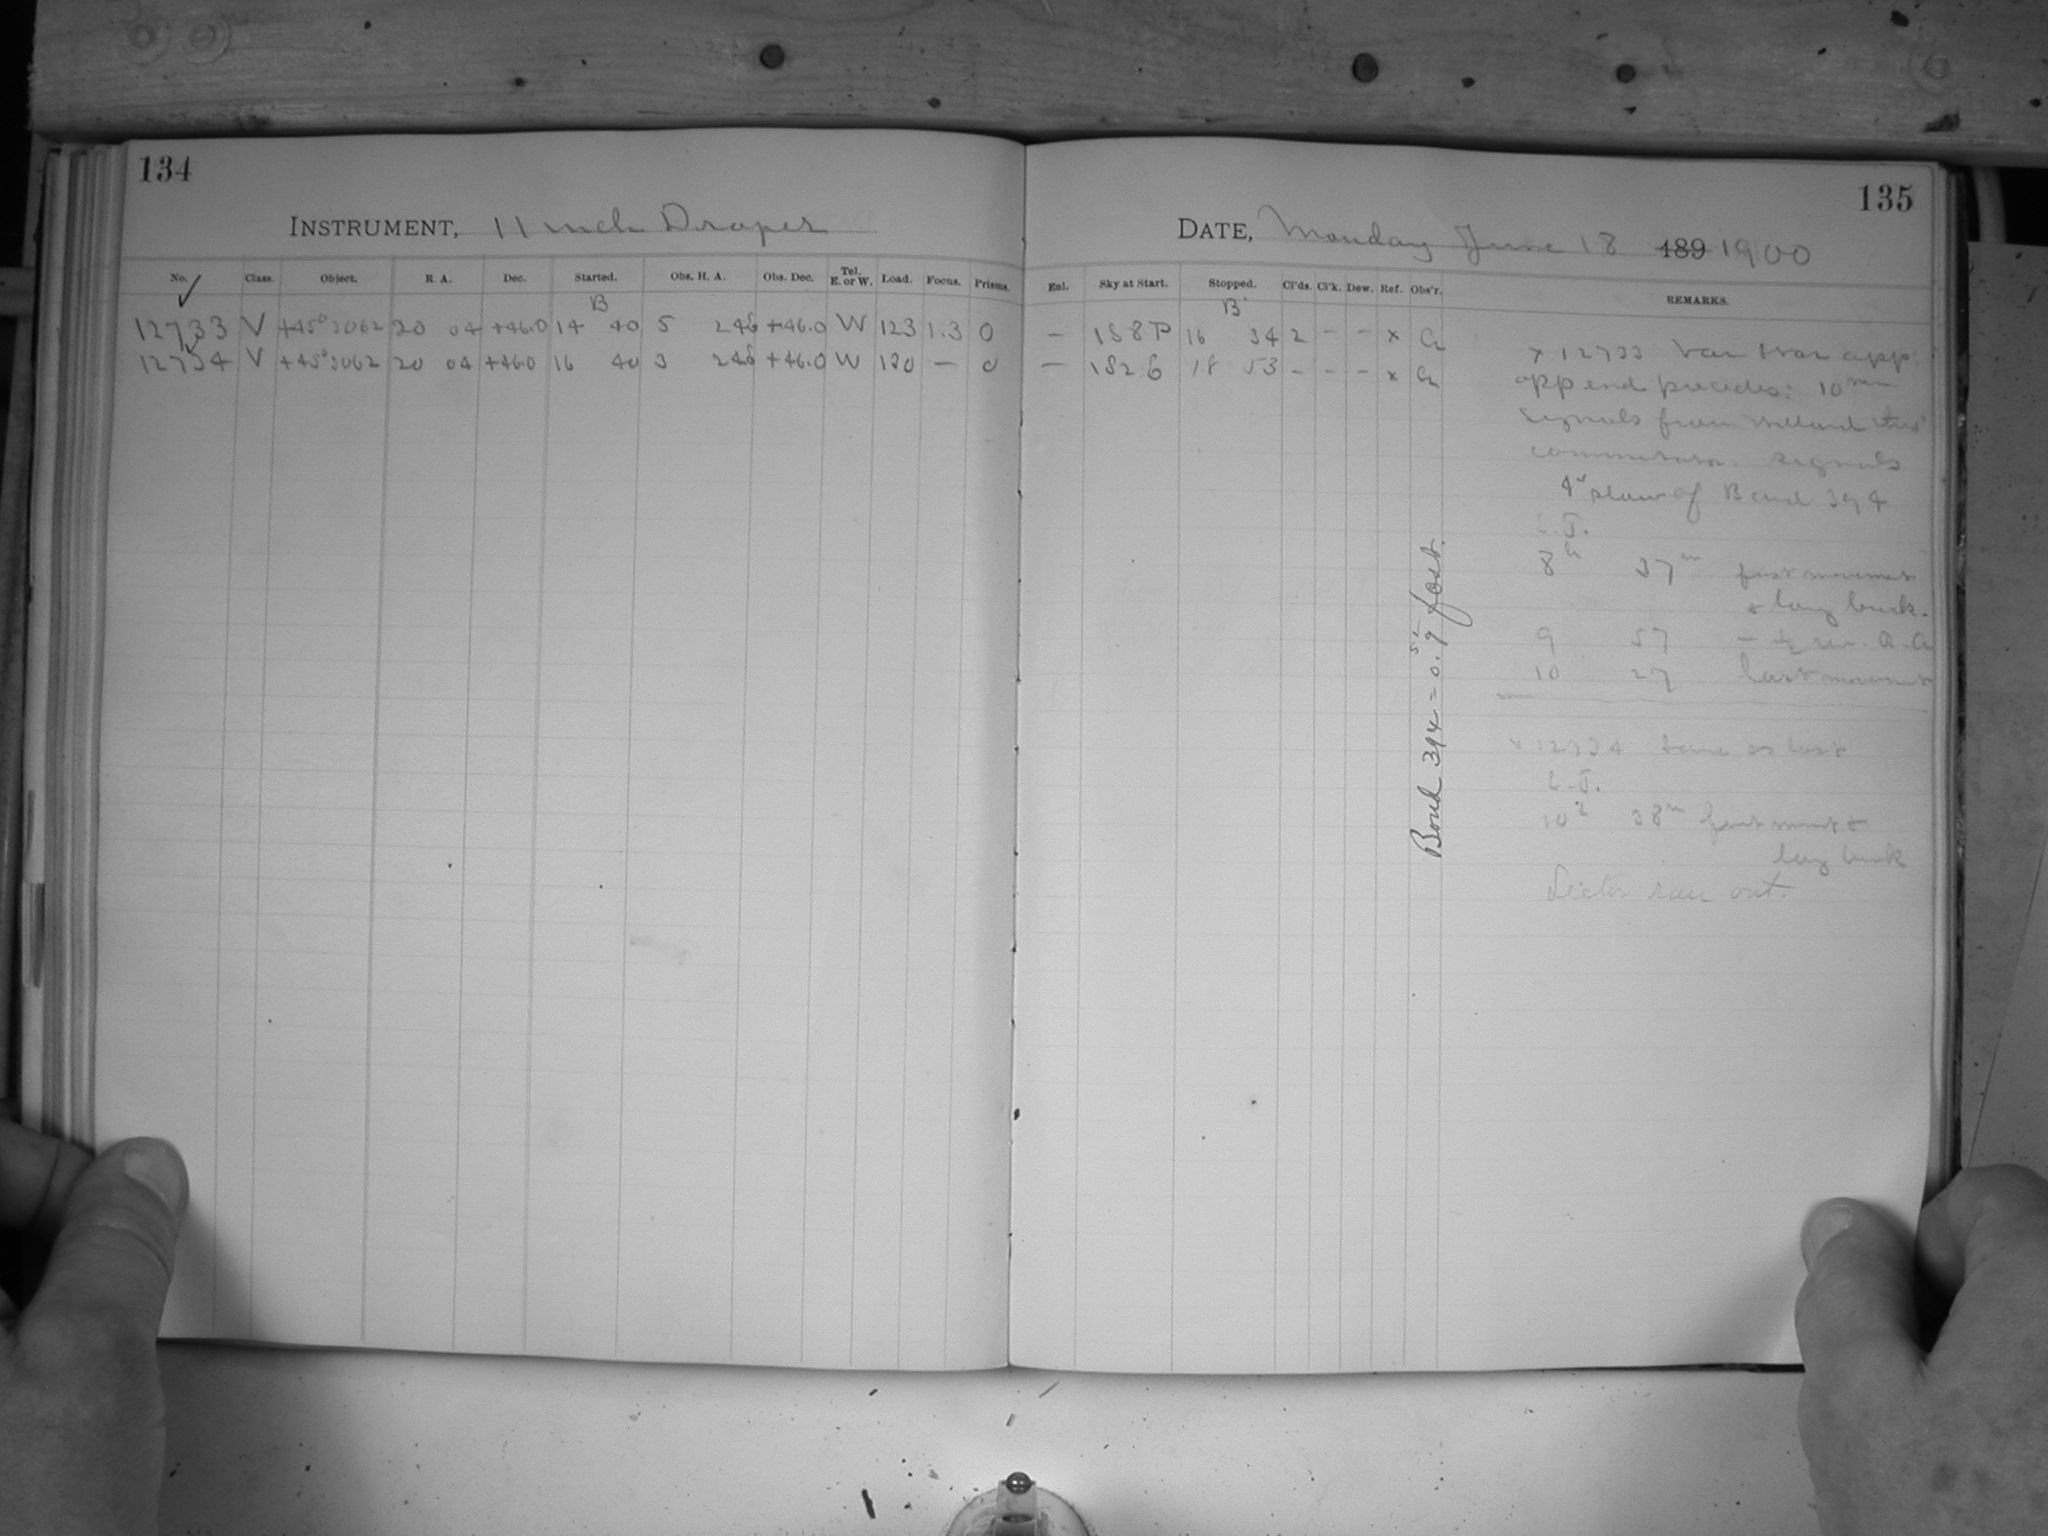 134
INSTRUMENT, 11 inch Draper
No. Class. Object. R. A. Dec. Started. Obs. H. A. Obs. Dec. Tel. E. or W. Load. Focus. Prisms.
B
12733 V +45°3062 20 04 +46.0 14 40 5 24 +46.0 W 123 1.3 0
12734 V +45°3062 20 04 +46.0 16 40 3 24 +46.0 W 130 — 0
135
DATE, Monday June 18 189 1900
Enl. Sky at Start. Stopped. Cl'ds. Cl'k. Dew. Ref. Obs'r. REMARKS.
B
— 16 34 2 - - x
— 18 53 - - - x
x 12733 Var star app
app end precedes; 10 mm
signals from Willard
commutator signals
4s slow of Bond 394
8h 37m first movement
& lamp
9 57 - ½ rev. R.A.
10 27 last movement
x 12734 Same as last
10h 38m first &
ran out.
Bond 394 = 0.9 fast.